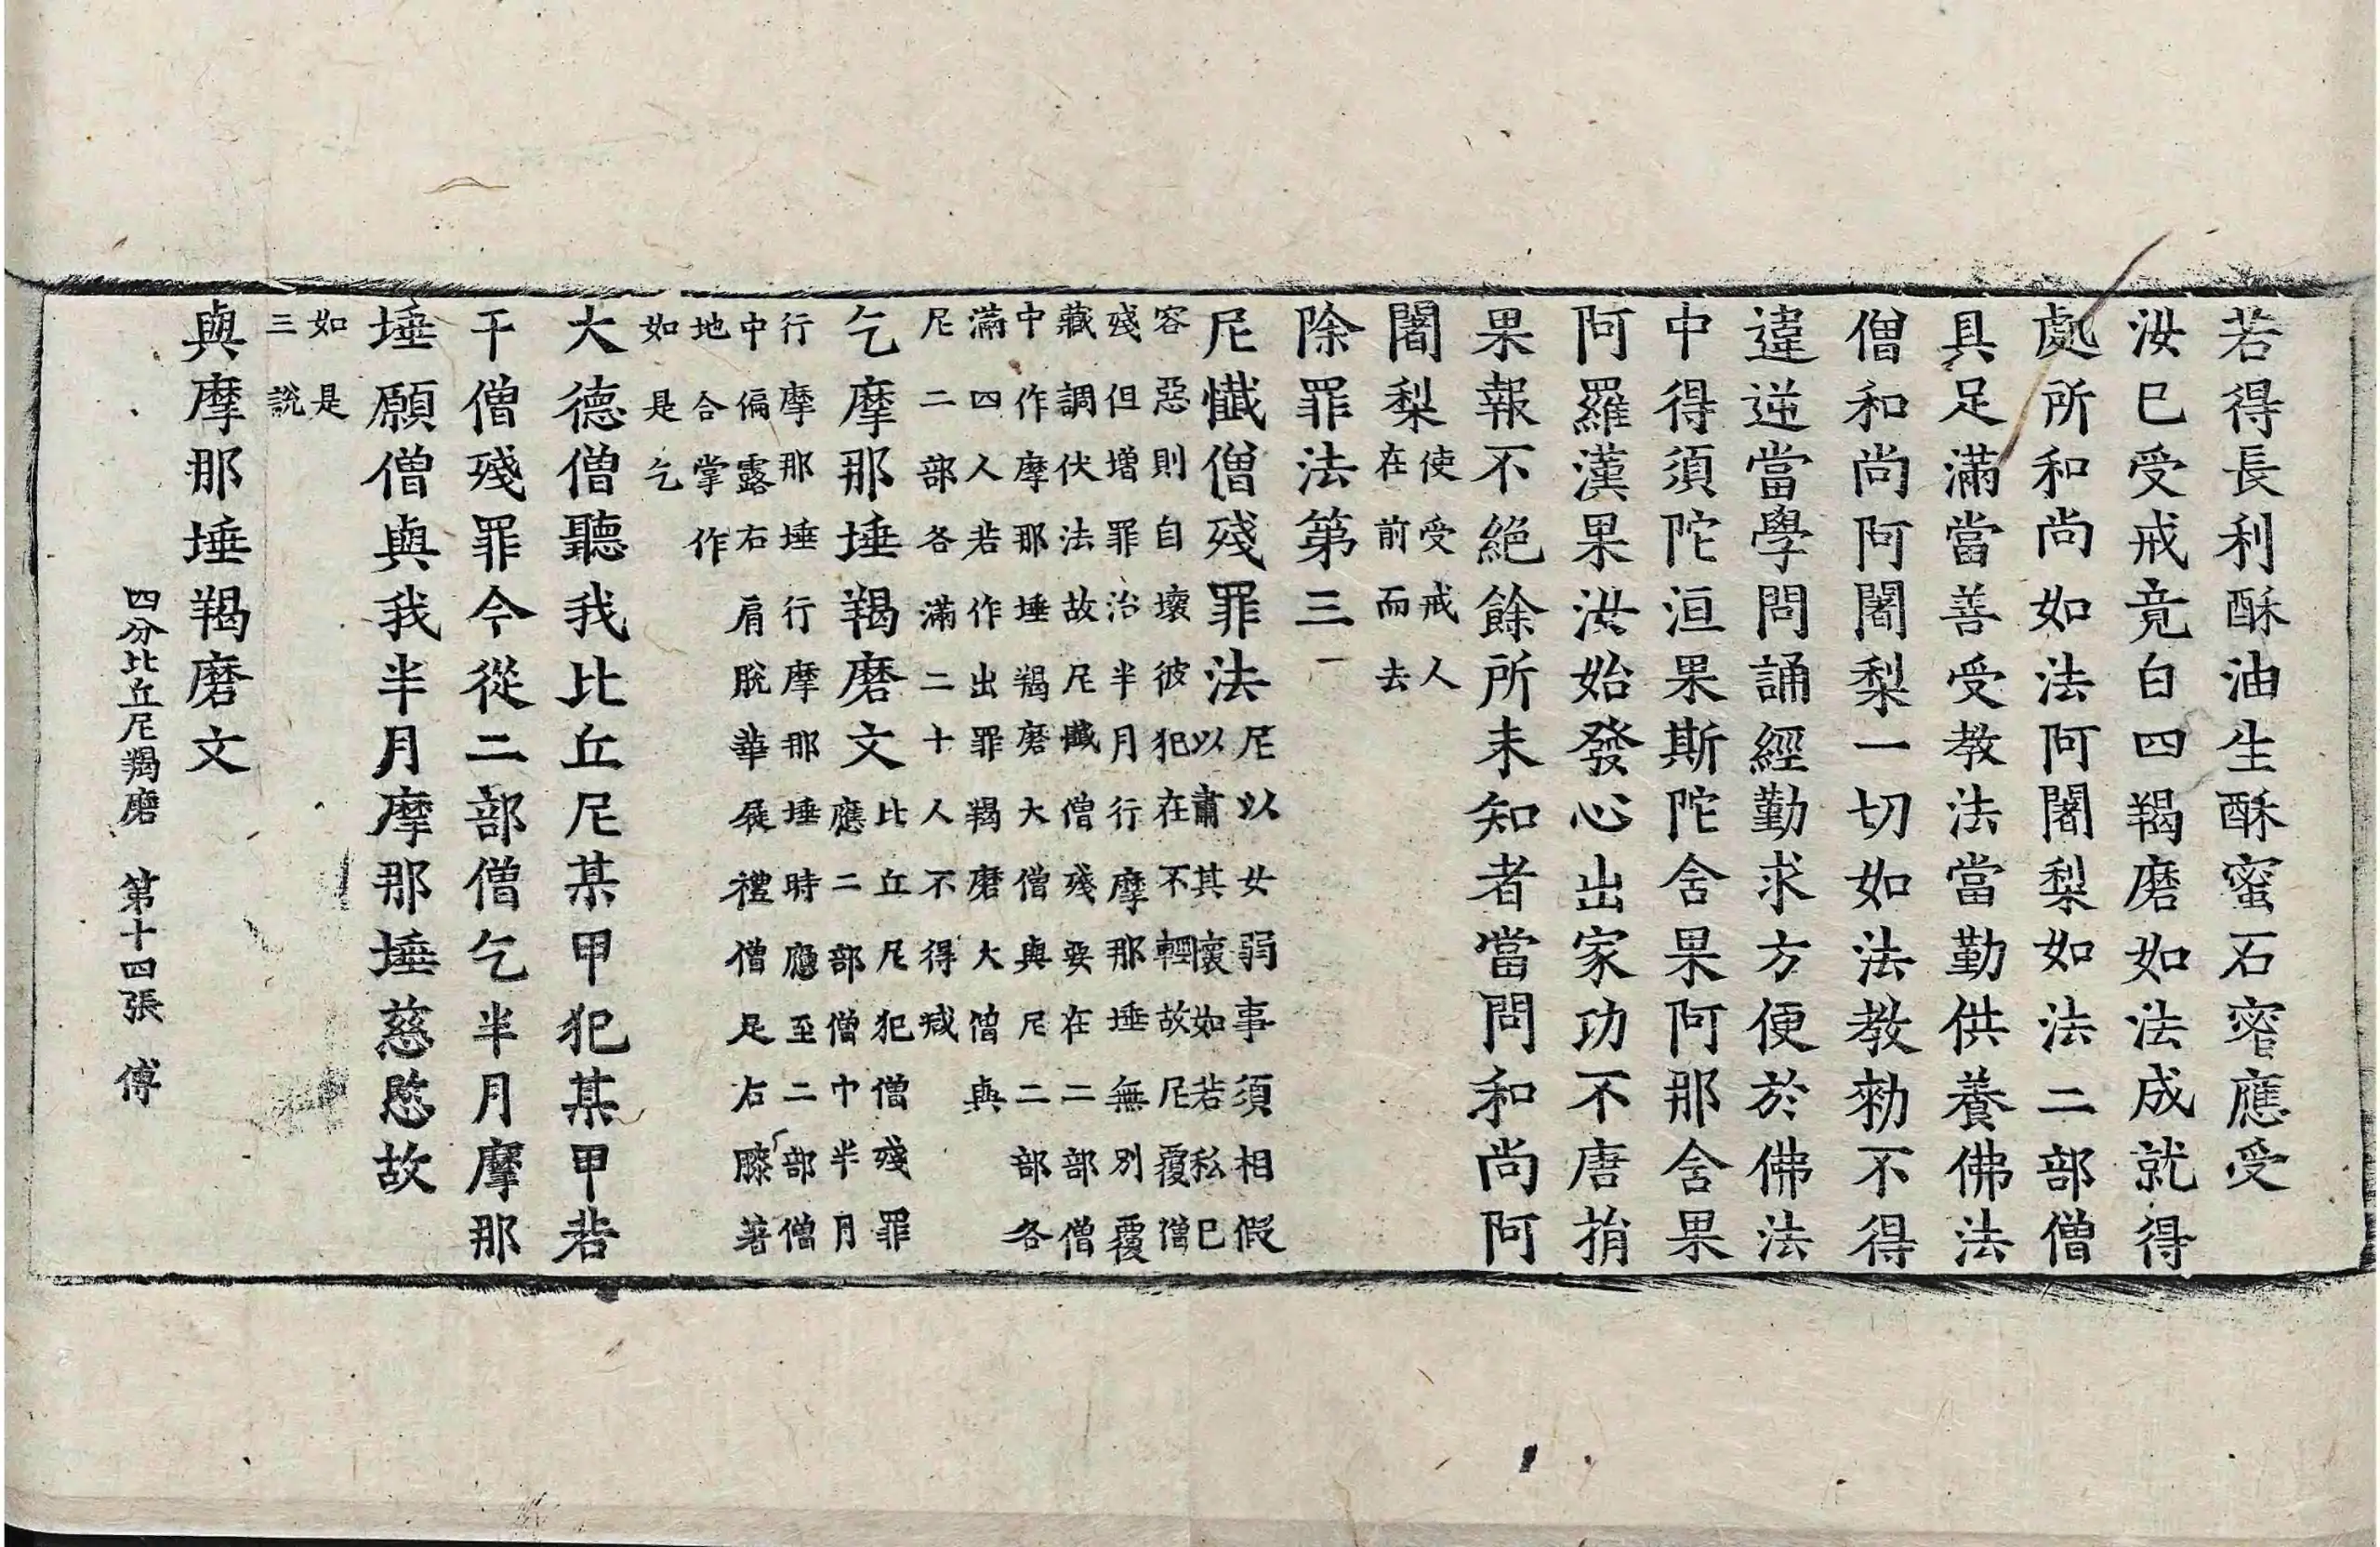 若得長利酥油生酥蜜石蜜應受
汝已受戒竟白四羯磨如法成就得
處所和尚如法阿闍梨如法二部僧
具足滿當善受教法當勤供養佛法
僧和尚阿闍梨一切如法教勑不得
違逆當學問誦經勤求方便於佛法
中得須陀洹果斯陀舍果阿那舍果
阿羅漢果汝始發心出家功不唐捐
果報不絕餘所未知者當問和尚阿
闍梨使受戒人
在前而去
除罪法第三
尼懺僧殘罪法尼以女弱事須相假
以肅其懷如若私已
容惡則自壞彼犯在不輕故尼覆僧
殘但增罪治半月行摩那埵無別覆
藏調伏法故尼懺僧殘要在二部僧
中作摩那埵羯磨大僧與尼二部各
滿四人若作出罪羯磨大僧與
尼二部各滿二十人不得減
乞摩那埵羯磨文比丘尼犯僧殘罪
應二部僧中半月
行摩那埵行摩那埵時應至二部僧
中偏露右肩脫華屣禮僧足右膝著
地合掌作
如是乞
大德僧聽我比丘尼某甲犯某甲若
干僧殘罪今從二部僧乞半月摩那
埵願僧與我半月摩那埵慈愍故
如是
三說
與摩那埵羯磨文
四分比丘尼羯磨 第十四張 傅